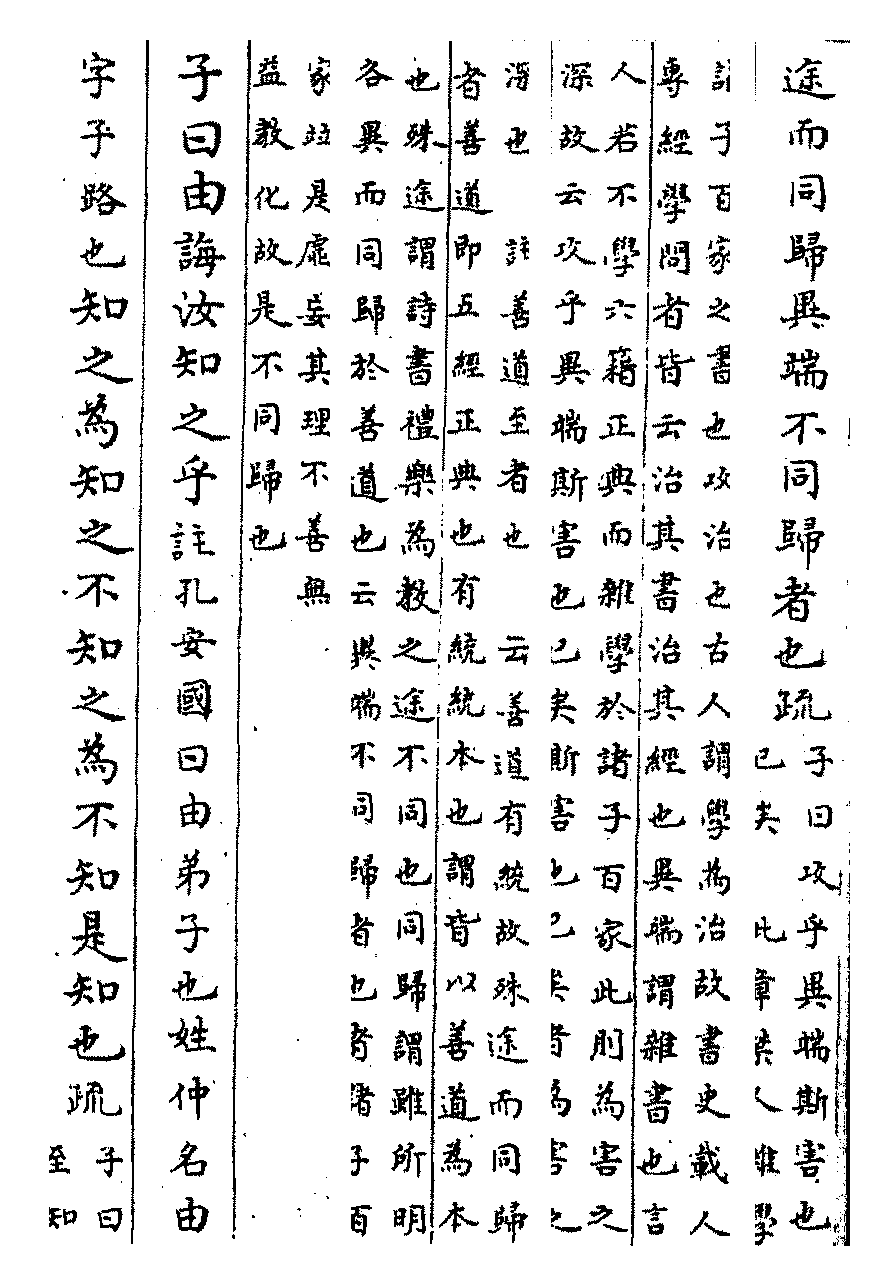 途而同歸異端不同歸者也疏
子曰攻乎異端斯害也
已矣 此章禁人雜學
諸子百家之書也攻治也古人謂學為治故書史載人
專經學問者皆云治其書治其經也異端謂雜書也言
人若不學六籍正典而雜學於諸子百家此則為害之
深故云攻乎異端斯害也已矣斯害也已矣者為害之
深也 註善道至者也 云善道有統故殊途而同歸
者善道即五經正典也有統統本也謂皆以善道為本
也殊途謂詩書禮樂為教之途不同也同歸謂雖所明
各異而同歸於善道也云異端不同歸者也者諸子百
家竝是虛妄其理不善無
益教化故是不同歸也
子曰由誨汝知之乎註孔安國曰由弟子也姓仲名由
字子路也知之為知之不知之為不知是知也疏
子曰
至知